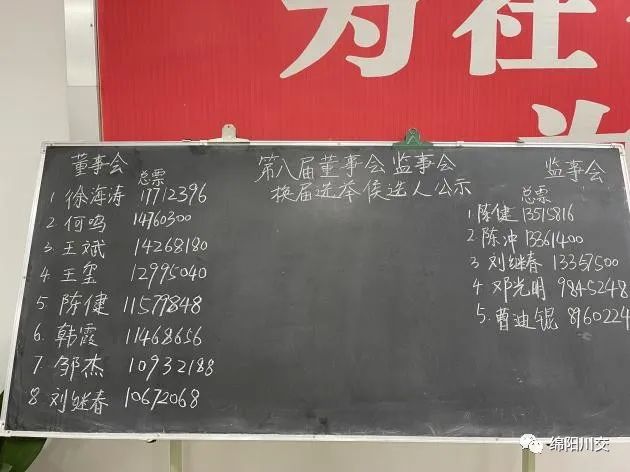 为在
为
第八届董事会 监事会
换届选举候选人公示
董事会
总票
1 徐海涛 17712396
2 何鸣 14760300
3. 王斌 14268180
4 王玺 12995040
5 陈健 11579848
6. 韩霞 11468656
7. 邹杰 10932188
8 刘继春 10672068
监事会
总票
1 陈健 13515816
2 陈冲 13361400
3 刘继春 13357500
4 邓光明 9845248
5. 曹迪锟 8960224
绵阳川交